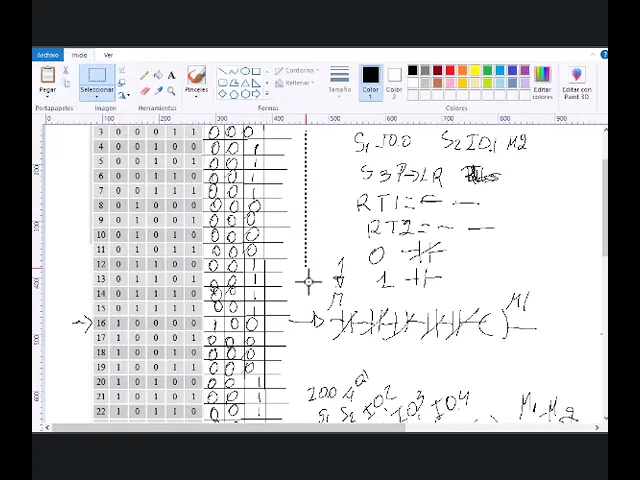 Archivo Inicio Ver
Pegar Seleccionar Pinceles Contorno Relleno Tamaño Color 1 Color 2 Editar colores Editar con Paint 3D
Portapapeles Imagen Herramientas Formas Colores
0 100 200 300 400 500 600 700 800 900
3 0 0 0 1 1 0 0 0
4 0 0 1 0 0 0 0 1
5 0 0 1 0 1 0 0 1
6 0 0 1 1 0 0 0 1
7 0 0 1 1 1 0 0 1
8 0 1 0 0 0 0 0 0
9 0 1 0 0 1 0 0 0
10 0 1 0 1 0 0 0 0
11 0 1 0 1 1 0 0 0
12 0 1 1 0 0 0 0 1
13 0 1 1 0 1 0 0 1
14 0 1 1 1 0 0 0 1
15 0 1 1 1 1 0 0 1
16 1 0 0 0 0 1 0 0
17 1 0 0 0 1 0 0 0
18 1 0 0 1 0 0 0 0
19 1 0 0 1 1 0 0 0
20 1 0 1 0 0 0 0 1
21 1 0 1 0 1 0 0 1
22 1 0 1 1 0 0 0 1
S1 I0.0 S2 I0.1 M2
S3
RT1=
RT2=
0
1
M1
I0.0
S1 S2 I0.2 I0.3 I0.4
M1 M2